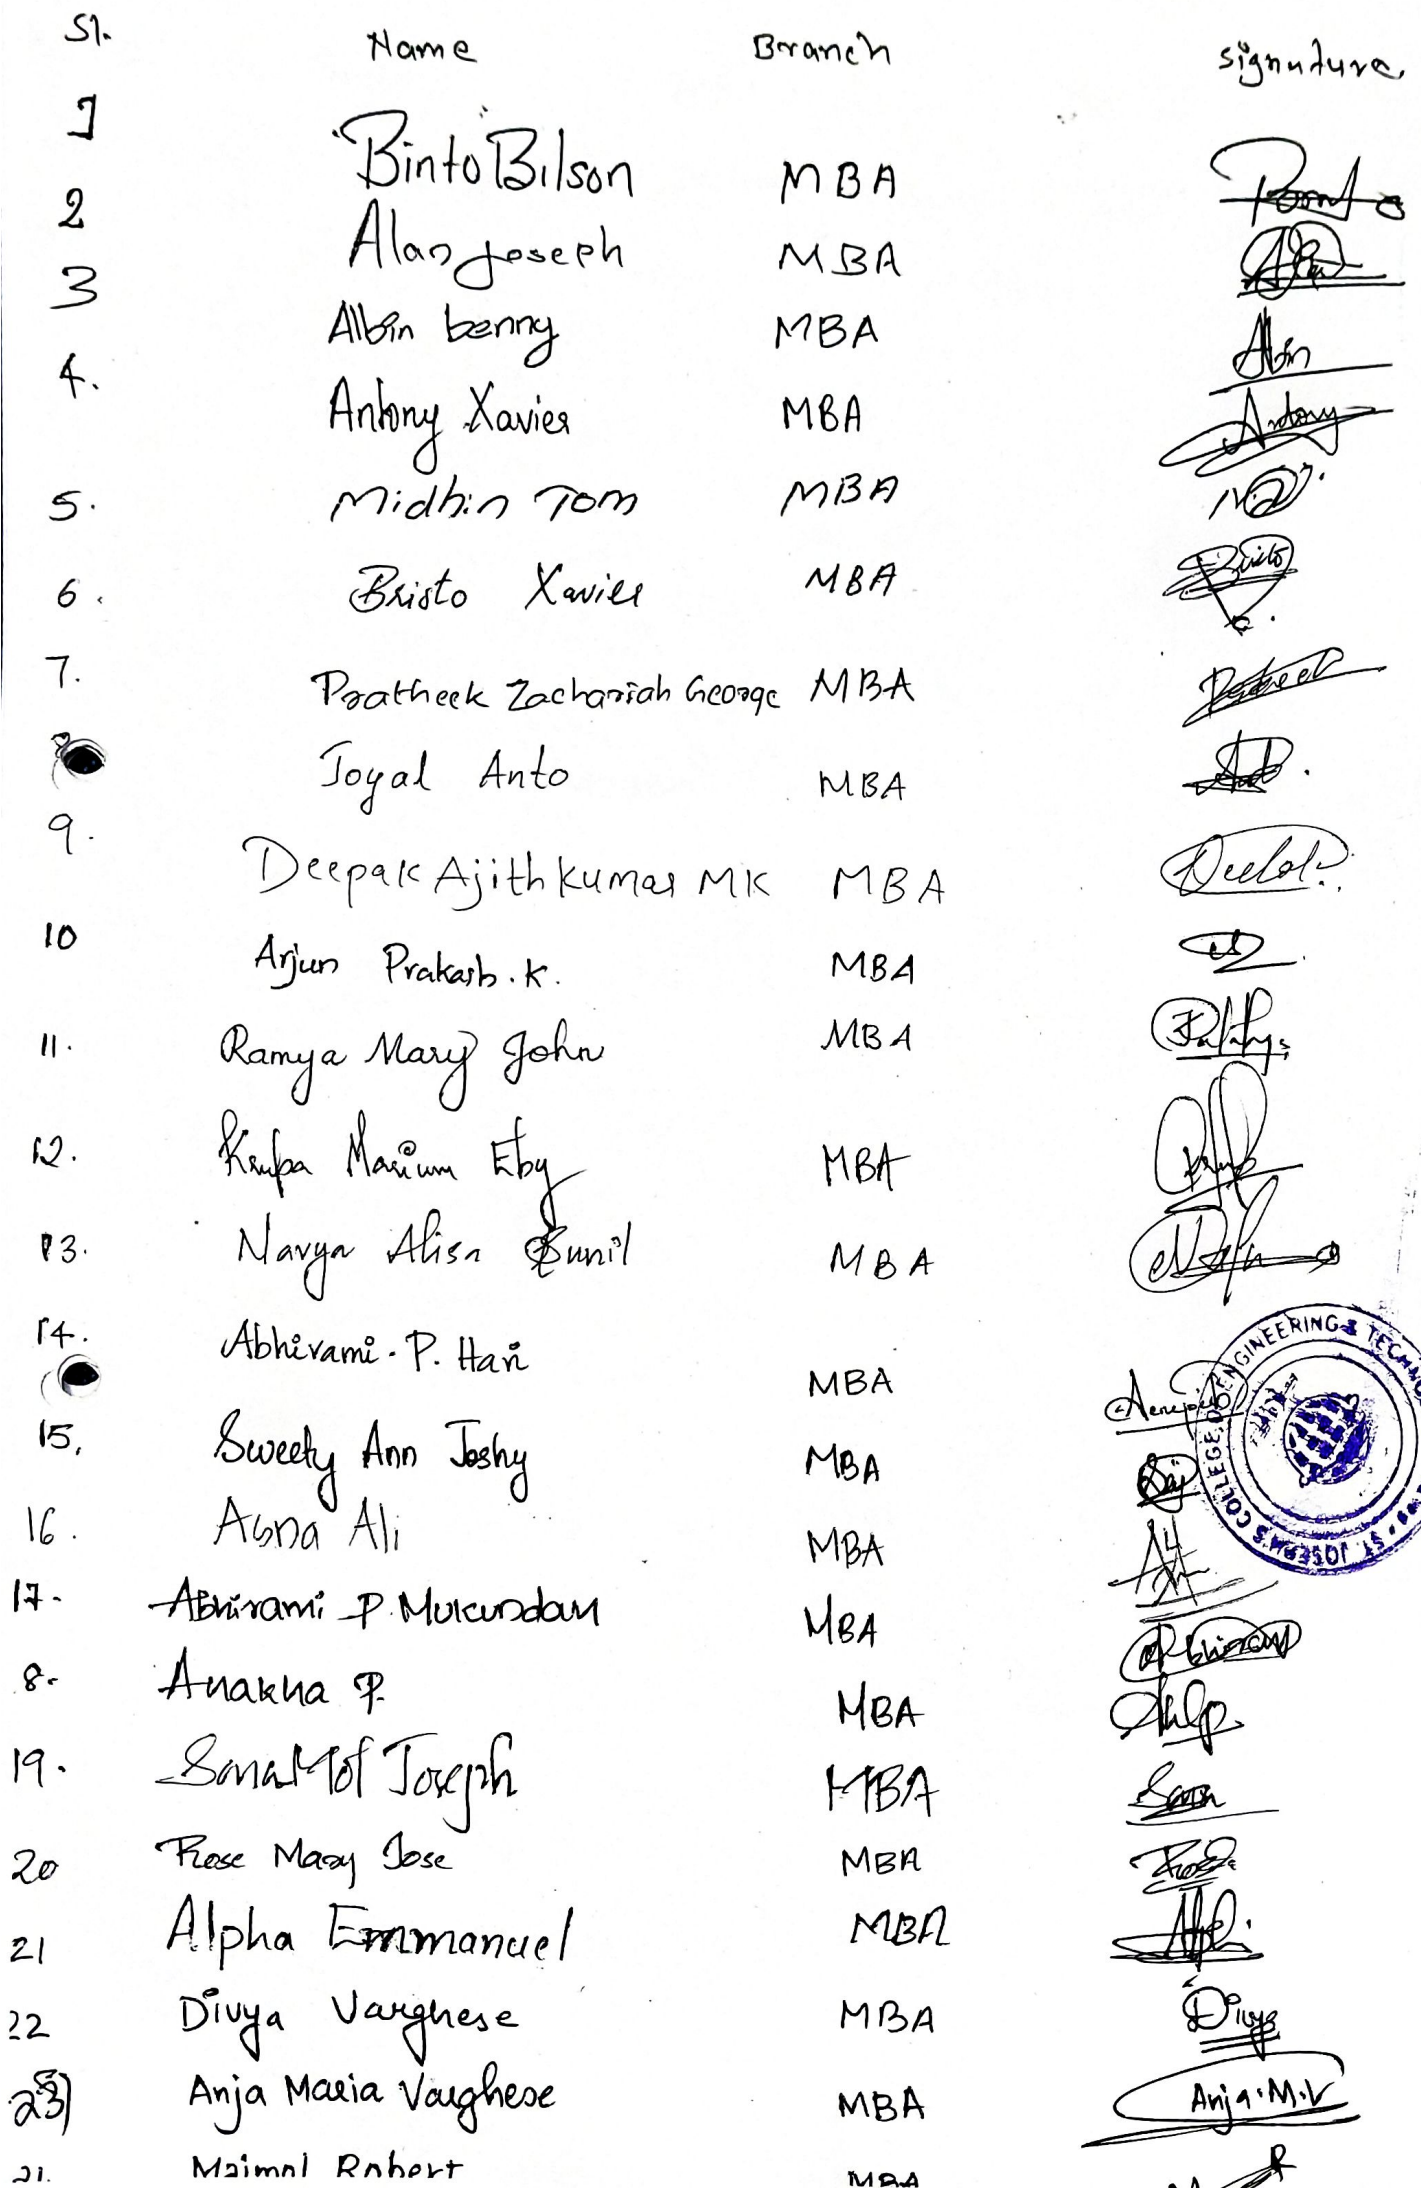 Sl. Name Branch signature
1 Binto Bilson MBA
2 Alan Joseph MBA
3 Albin benny MBA Albin
4. Antony Xavier MBA Antony
5. Midhin Tom MBA
6. Bristo Xavier MBA Bristo
7. Pratheek Zachariah George MBA
Joyal Anto MBA
9. Deepak Ajith Kumar MK MBA
10 Arjun Prakash.K. MBA
11. Ramya Mary John MBA
12. Krupa Mariam Eby MBA
13. Navya Alisa Sunil MBA
14. Abhirami.P. Hari MBA
15. Sweety Ann Joshy MBA
16. Asna Ali MBA
17. Abhirami P. Mukundan MBA
8. Anakha P. MBA
19. Sona Joseph MBA Sona
20 Rose Mary Jose MBA Rose
21 Alpha Emmanuel MBA
22 Divya Varghese MBA Divya
23) Anja Maria Varghese MBA Anja.M.V
Robert MBA
ST. JOSEPH'S COLLEGE OF ENGINEERING &